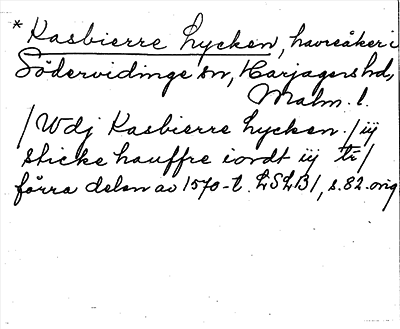 * Kasbierre Lycken, havreåker i
Södervidinge sn, Harjagers hd,
Malm. l.
/Wdj Kasbierre Lycken./iij
sticke hauffre iordt iij tr/
förra delen av 1570-t. LSLB1, s. 82. orig